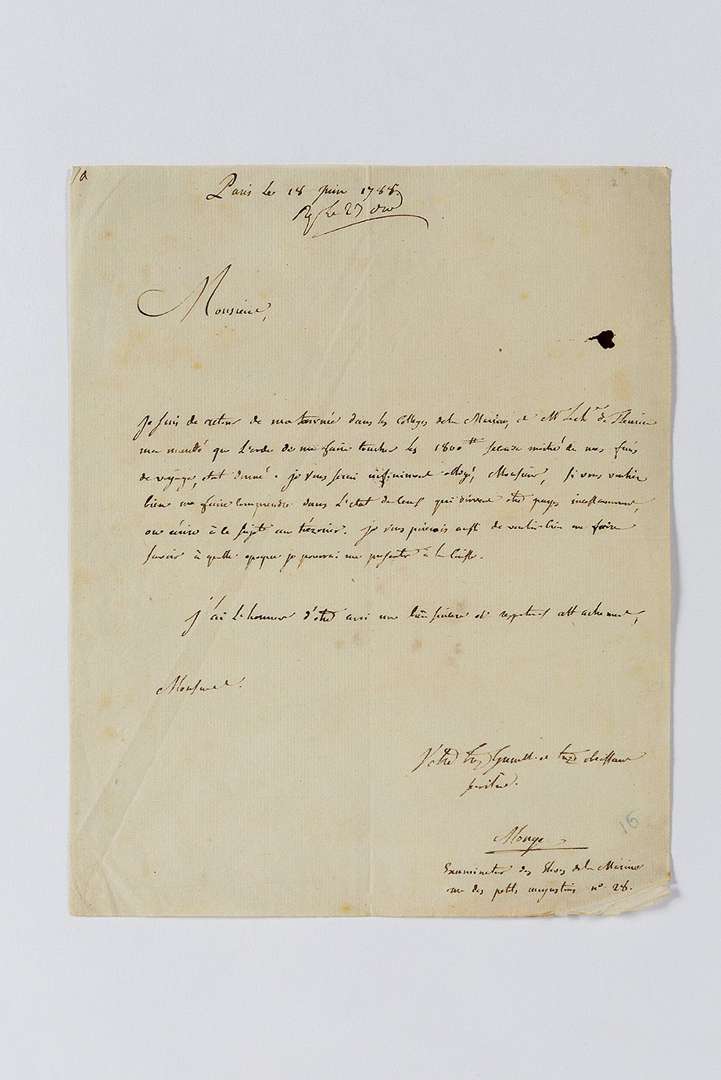 Paris le 18 juin 1788
Rep le 27 dud
Monsieur,
je suis de retour de ma tournée dans les Colleges de la Marine, et Mr le ch.er de Fleurieu
me mande que l'ordre de me faire toucher les 1800tt seconde moitié de mes frais
de voyage, etat donné. je vous serai infiniment obligé, Monsieur, si vous voulez
bien me faire comprendre dans l'etat de ceux qui doivent etre payés incessamment,
ou écrire à ce sujet au trésorier. je vous prierois aussi de vouloir bien me faire
savoir à quelle epoque je pourrai me presenter à la Caisse.
j'ai l'honneur d'etre avec un bien sincere et respectueux attachement,
Monsieur.
Votre très humble et très obeissant
serviteur.
Monge
Examinateur des Eleves de la Marine
rue des petits augustins n° 28.
16